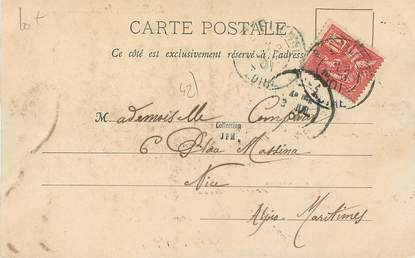 CARTE POSTALE
Ce côté est exclusivement réservé à l'adresse
42)
LOIRE
10
Mademoiselle
Collection
JFM
6 Place Massina
Nice
Alpes-Maritimes